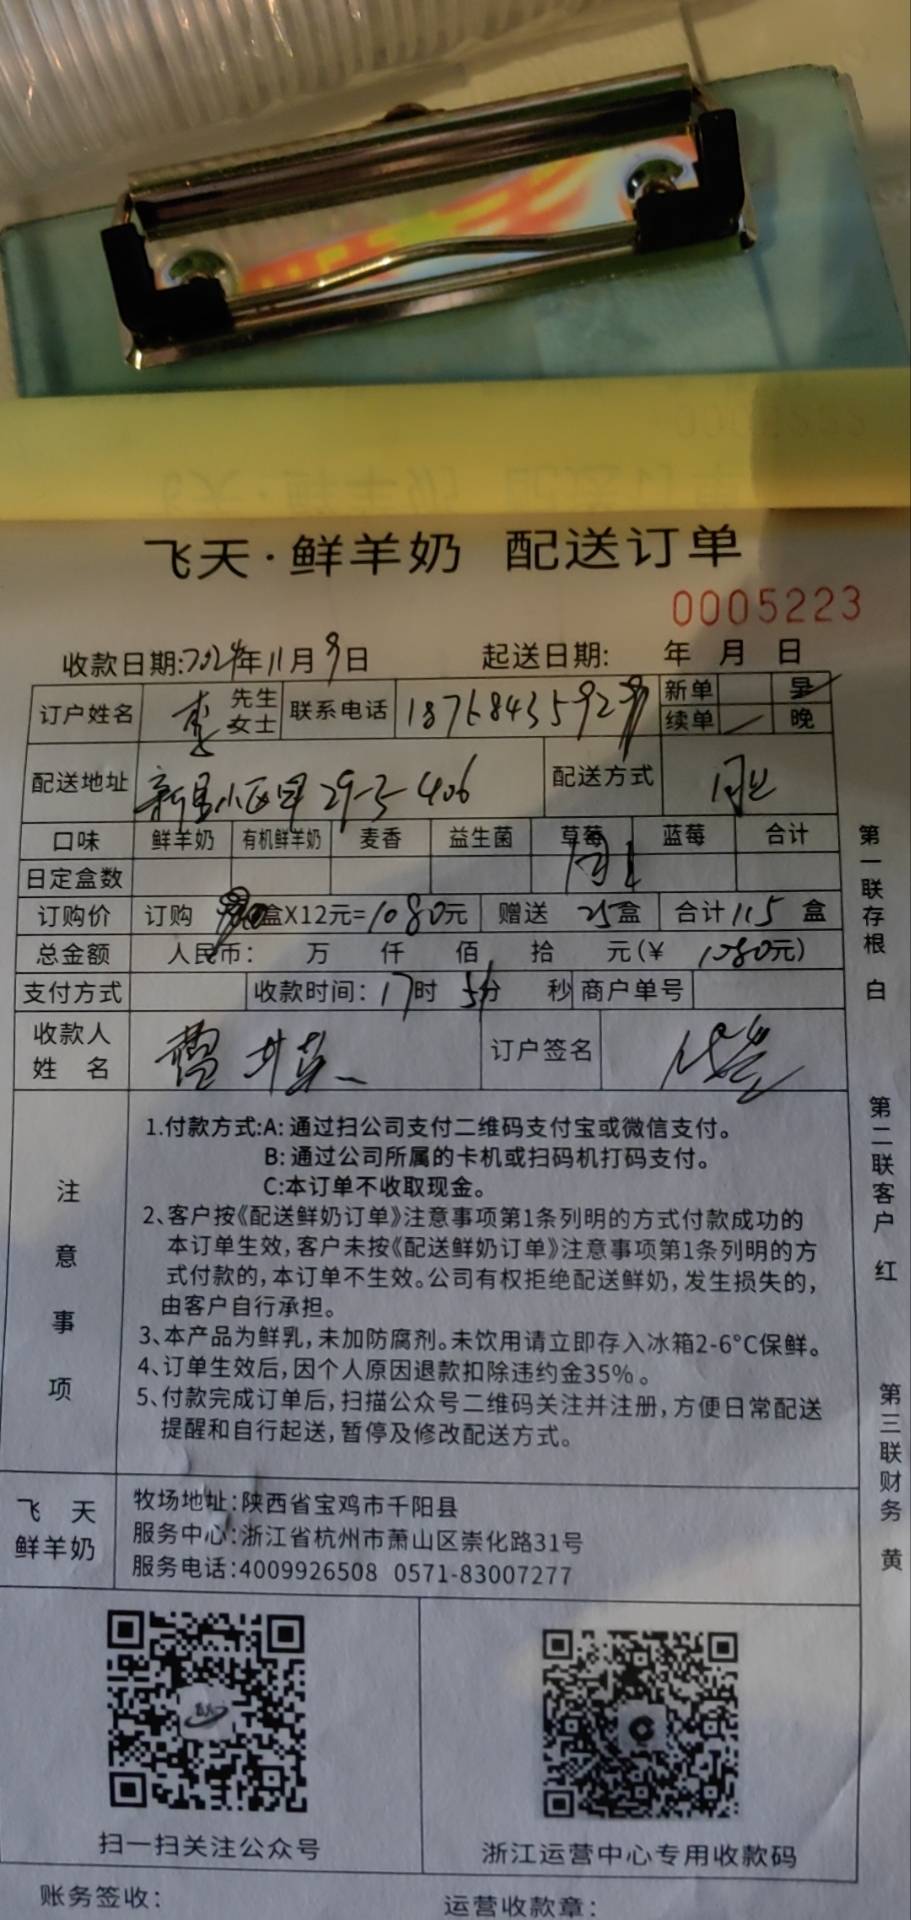 飞天·鲜羊奶 配送订单
0005223
收款日期:2024年11月9日 起送日期: 年 月 日
订户姓名 李 先生 女士 联系电话 新单 早
续单 晚
配送地址 29-3-406 配送方式 同上
口味 鲜羊奶 有机鲜羊奶 麦香 益生菌 草莓 蓝莓 合计
日定盒数 同上
订购价 订购 盒X12元=1080元 赠送 25盒 合计115 盒
总金额 人民币: 万 仟 佰 拾 元(¥ 1080元)
支付方式 收款时间: 17时 分 秒 商户单号
收款人 姓 名 订户签名
注意事项
1.付款方式:A: 通过扫公司支付二维码支付宝或微信支付。
B: 通过公司所属的卡机或扫码机打码支付。
C:本订单不收取现金。
2、客户按《配送鲜奶订单》注意事项第1条列明的方式付款成功的
本订单生效,客户未按《配送鲜奶订单》注意事项第1条列明的方
式付款的,本订单不生效。公司有权拒绝配送鲜奶,发生损失的,
由客户自行承担。
3、本产品为鲜乳,未加防腐剂。未饮用请立即存入冰箱2-6°C保鲜。
4、订单生效后,因个人原因退款扣除违约金35%。
5、付款完成订单后,扫描公众号二维码关注并注册,方便日常配送
提醒和自行起送,暂停及修改配送方式。
飞 天
鲜羊奶
牧场地址:陕西省宝鸡市千阳县
服务中心:浙江省杭州市萧山区崇化路31号
服务电话:4009926508 0571-83007277
扫一扫关注公众号
浙江运营中心专用收款码
账务签收:
运营收款章:
第一联存根 白
第二联客户 红
第三联财务 黄